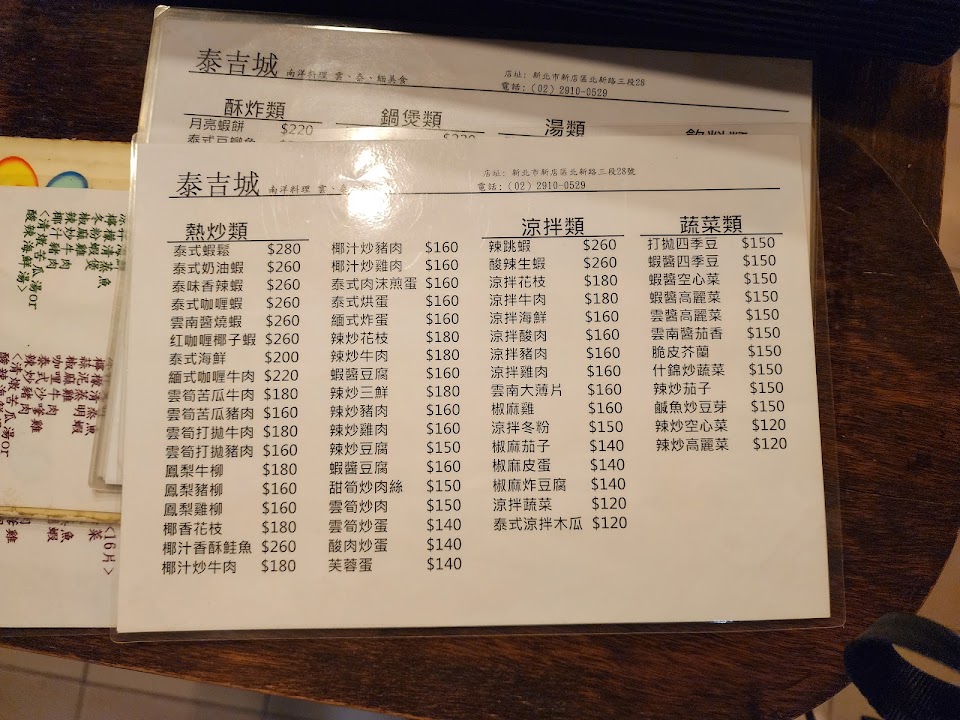 泰吉城 南洋料理 雲、泰、緬美食
店址: 新北市新店區北新路三段28
電話:（02）2910-0529
酥炸類 鍋煲類 湯類
月亮蝦餅 $220
泰吉城 南洋料理
店址: 新北市新店區北新路三段28號
電話:（02）2910-0529
熱炒類
泰式蝦鬆 $280
泰式奶油蝦 $260
泰味香辣蝦 $260
泰式咖喱蝦 $260
雲南醬燒蝦 $260
红咖喱椰子蝦 $260
泰式海鮮 $200
緬式咖喱牛肉 $220
雲筍苦瓜牛肉 $180
雲筍苦瓜豬肉 $160
雲筍打拋牛肉 $180
雲筍打拋豬肉 $160
鳳梨牛柳 $180
鳳梨豬柳 $160
鳳梨雞柳 $160
椰香花枝 $180
椰汁香酥鮭魚 $260
椰汁炒牛肉 $180
椰汁炒豬肉 $160
椰汁炒雞肉 $160
泰式肉沫煎蛋 $160
泰式烘蛋 $160
緬式炸蛋 $160
辣炒花枝 $180
辣炒牛肉 $180
蝦醬豆腐 $160
辣炒三鮮 $180
辣炒豬肉 $160
辣炒雞肉 $160
辣炒豆腐 $150
蝦醬豆腐 $160
甜筍炒肉絲 $150
雲筍炒肉 $150
雲筍炒蛋 $140
酸肉炒蛋 $140
芙蓉蛋 $140
涼拌類
辣跳蝦 $260
酸辣生蝦 $260
涼拌花枝 $180
涼拌牛肉 $180
涼拌海鮮 $160
涼拌酸肉 $160
涼拌豬肉 $160
涼拌雞肉 $160
雲南大薄片 $160
椒麻雞 $160
涼拌冬粉 $150
椒麻茄子 $140
椒麻皮蛋 $140
椒麻炸豆腐 $140
涼拌蔬菜 $120
泰式涼拌木瓜 $120
蔬菜類
打拋四季豆 $150
蝦醬四季豆 $150
蝦醬空心菜 $150
蝦醬高麗菜 $150
雲醬高麗菜 $150
雲南醬茄香 $150
脆皮芥蘭 $150
什錦炒蔬菜 $150
辣炒茄子 $150
鹹魚炒豆芽 $150
辣炒空心菜 $120
辣炒高麗菜 $120